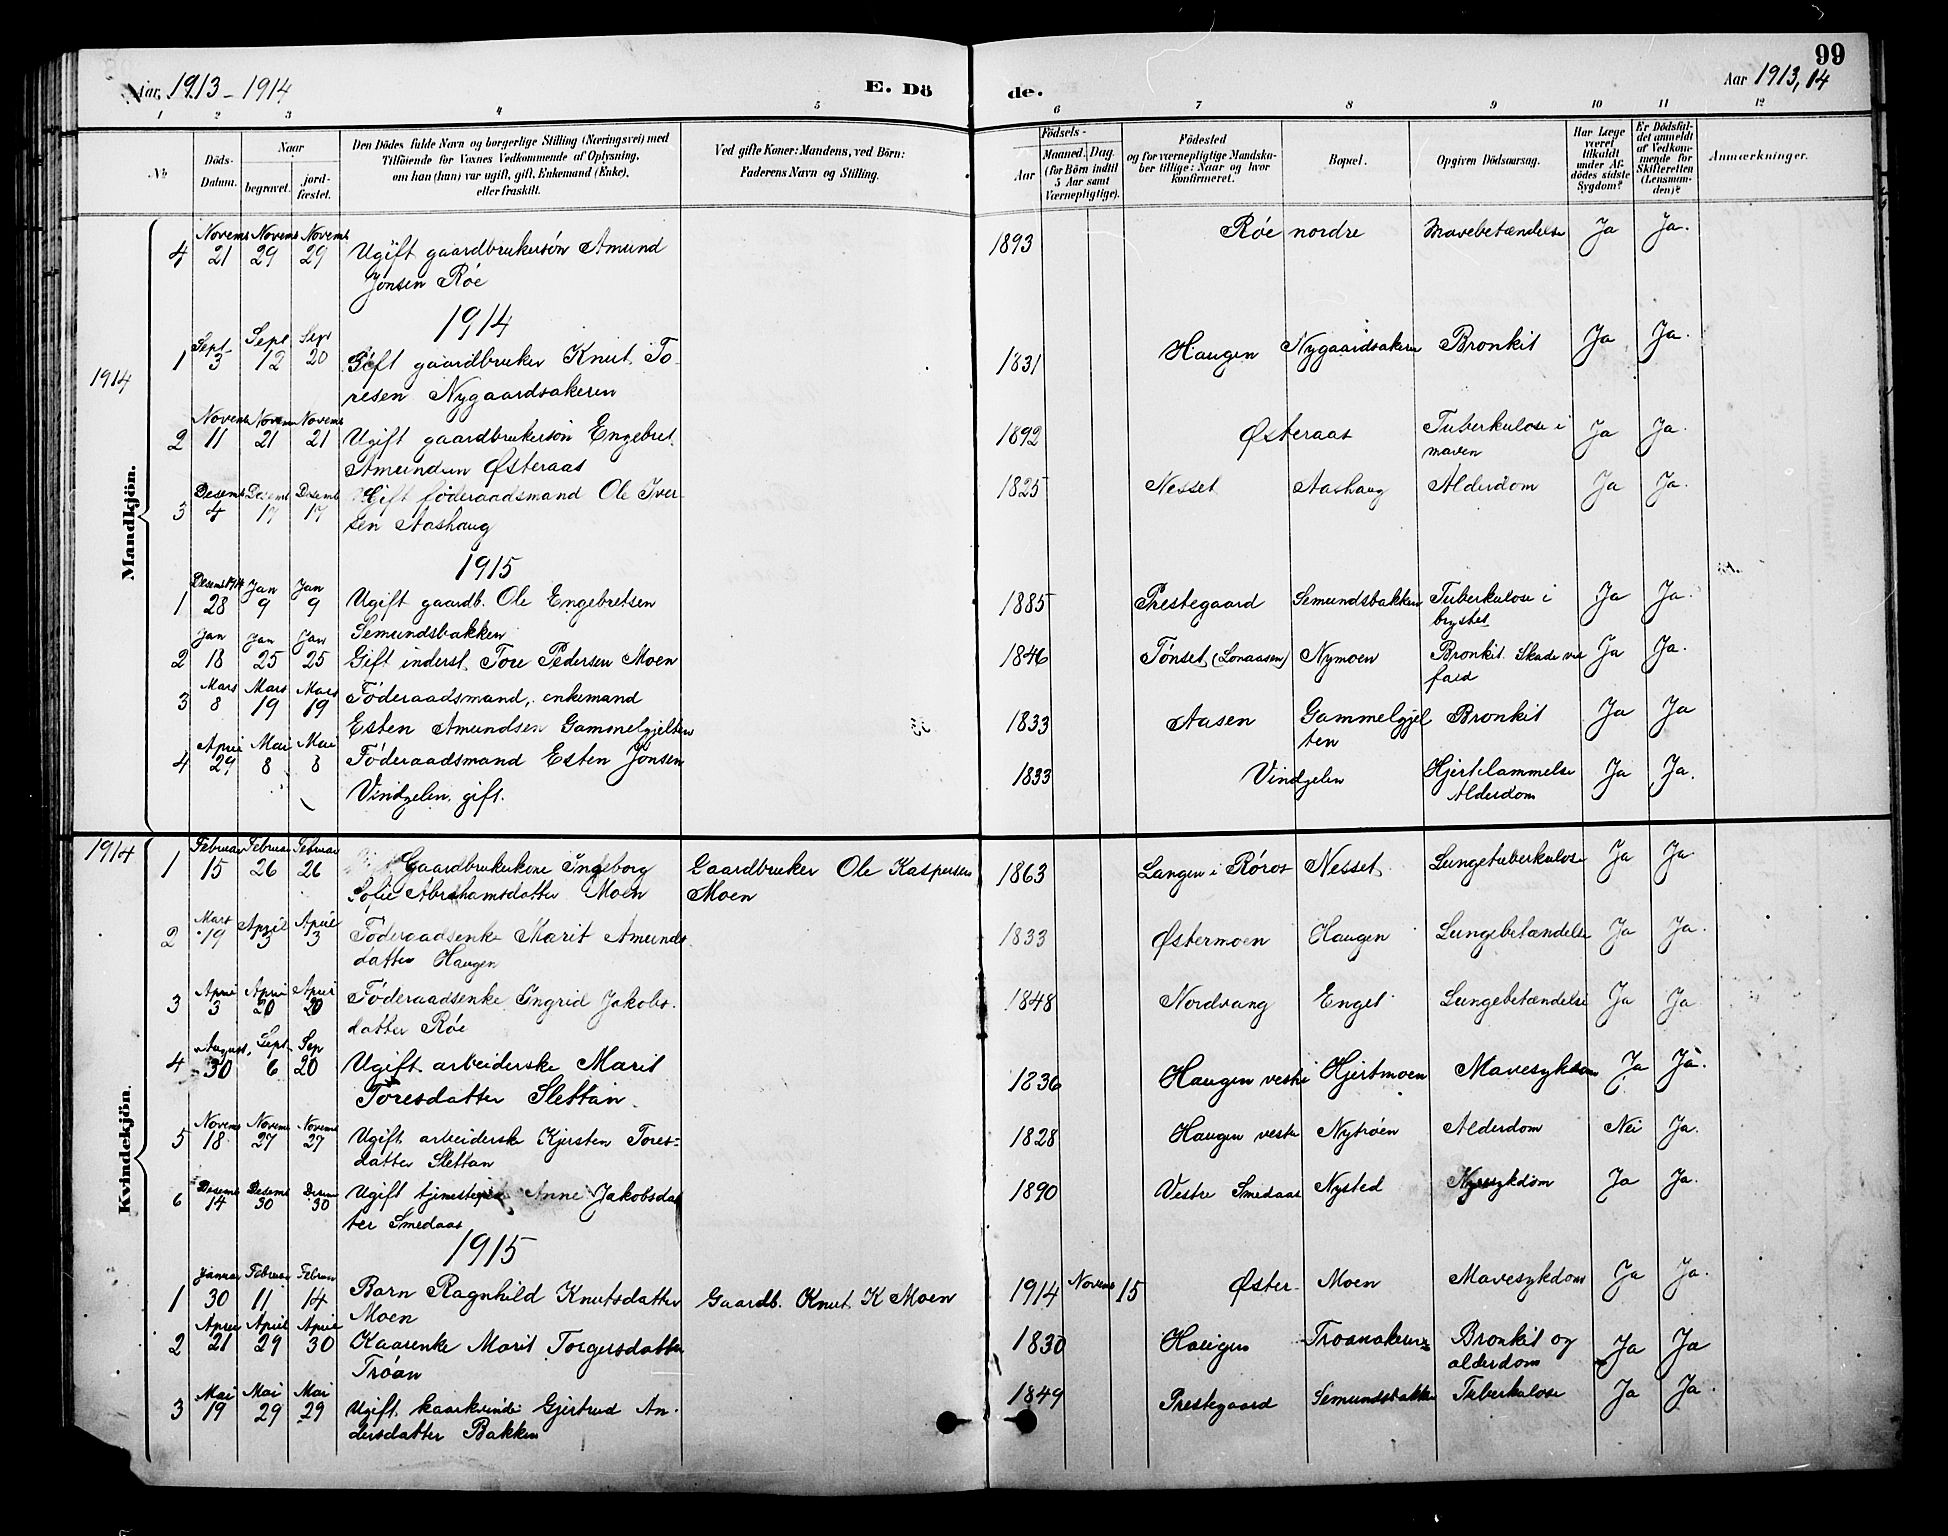 Aar 1913-1914
E. Dö
de.
Aar 1913, 14
99
1 2 3 4 5 6 7 8 9 10 11 12
No
Döds-Datum.
Naar
begravet.
jord-fæstet.
Den Dödes fulde Navn og borgerlige Stilling (Næringsvei) med
Tilföiende for Voxnes Vedkommende af Oplysning,
om han (hun) var ugift, gift, Enkemand (Enke),
eller fraskilt.
Ved gifte Koner: Mandens, ved Börn:
Faderens Navn og Stilling.
Födsels-
Aar
Maaned. Dag.
(for Börn indtil
5 Aar samt
Værnepligtige).
Födested
og for værnepligtige Mandska-
ber tillige: Naar og hvor
konfirmeret.
Bopæl.
Opgiven Dödsaarsag.
Har Læge
været
tilkaldt
under Af-
dödes sidste
Sygdom?
Er Dödsfal-
det anmeldt
af Vedkom-
mende for
Skifteretten
(Lensman-
den)?
Anmærkninger.
Mandkjön.
4 Novemb 21 Novemb 29 Novemb 29 Ugift gaardbrukersøn Amund 1893 Røe nordre Mavebetændelse Ja Ja.
Jonsen Røe
1914
1914
1 Sept 3 Sept 12 Sep 20 Gift gaardbruker Knut To- 1831 Haugen Nygaardsakeren Bronkit Ja Ja.
resen Nygaardsakeren
2 Novemb 11 Novemb 21 Novemb 21 Ugift gaardbrukersøn Engebret 1892 Østeraas Tuberkulose i maven Ja Ja.
Amundsen Østeraas
3 Desemb 4 Desemb 17 Desemb 17 Gift føderaadsmand Ole Iver- 1825 Nesset Aashaug Alderdom Ja Ja.
sen Aashaug
1915
1 Desemb 1914 28 Jan 9 Jan 9 Ugift gaardb. Ole Engebretsen 1885 Prestegaard Semundsbakken Tuberkulose i brystet Ja Ja.
Semundsbakken
2 Jan 18 Jan 25 Jan 25 Gift inderst. Tore Pedersen Moen 1846 Tønset (Lonaasen) Nymoen Bronkit. Skade ved fald Ja Ja.
3 Mars 8 Mars 19 Mars 19 Føderaadsmand, enkemand
Esten Amundsen Gammelgjelten 1833 Aasen Gammelgjel ten Bronkit Ja Ja
4 April 29 Mai 8 Mai 8 Føderaadsmand Esten Jonsen 1833 Vingelen Hjertelammelse Alderdom Ja Ja.
Vingelen, gift.
Kvindekjön.
1914
1 Februar 15 Februar 26 Februar 26 Gaardbrukerkone Ingeborg Gaardbruker Ole Kaspersen 1863 Langen i Røros Nesset Lungetuberkulose Ja Ja
Sofie Abrahamsdatter Moen Moen
2 Mars 19 April 3 April 3 Føderaadsenke Marit Amunds 1833 Østermoen Haugen Lungebetændelse Ja Ja.
datter Haugen
3 April 3 April 20 April 20 Føderaadsenke Ingrid Jakobs. 1848 Nordvang Enget Lungebetændelse Ja Ja
datter Røe
4 August 30 Sept 6 Sep 20 Ugift arbeiderske Marit 1836 Haugen vestre Hjertmoen Mavesykdom Ja Ja.
Toresdatter Slettan.
5 Novemb 18 Novemb 27 Novemb 27 Ugift arbeiderske Kjersten Tores= 1828 Haugen vestre Nytrøen Alderdom Nei Ja.
datter Slettan
6 Desemb 14 Desemb 30 Desemb 30 Ugift tjenestepike Anne Jakobsdat 1890 Vestre Smedaas Nysted Nyresykdom Ja Ja.
ter Smedaas
1915
1 Januar 30 Februar 11 Februar 14 Barn Ragnhild Knutsdatter Gaardb. Knut K Moen 1914 Novemb 15 Øster- Moen Mavesykdom Ja Ja.
Moen
2 April 21 April 29 April 30 Kaarenke Marit Torgersdatter 1830 Haugen Troanakeren Bronkit og alderdom Ja Ja
Trøan
3 Mai 19 Mai 29 Mai 29 Ugift kaarkvinde Gjertrud An- 1849 Prestegaard Semundsbakken Tuberkulose Ja Ja.
dersdatter Bakken